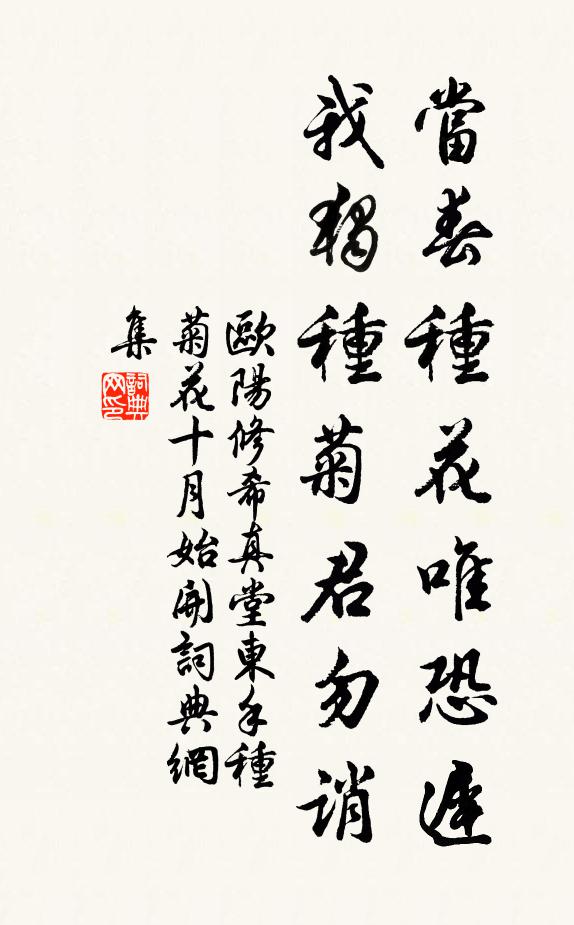 當春種花唯恐遲
我獨種菊君勿誚
歐陽修希真堂東手種
菊花十月始開詞典網
集
詞典
网印